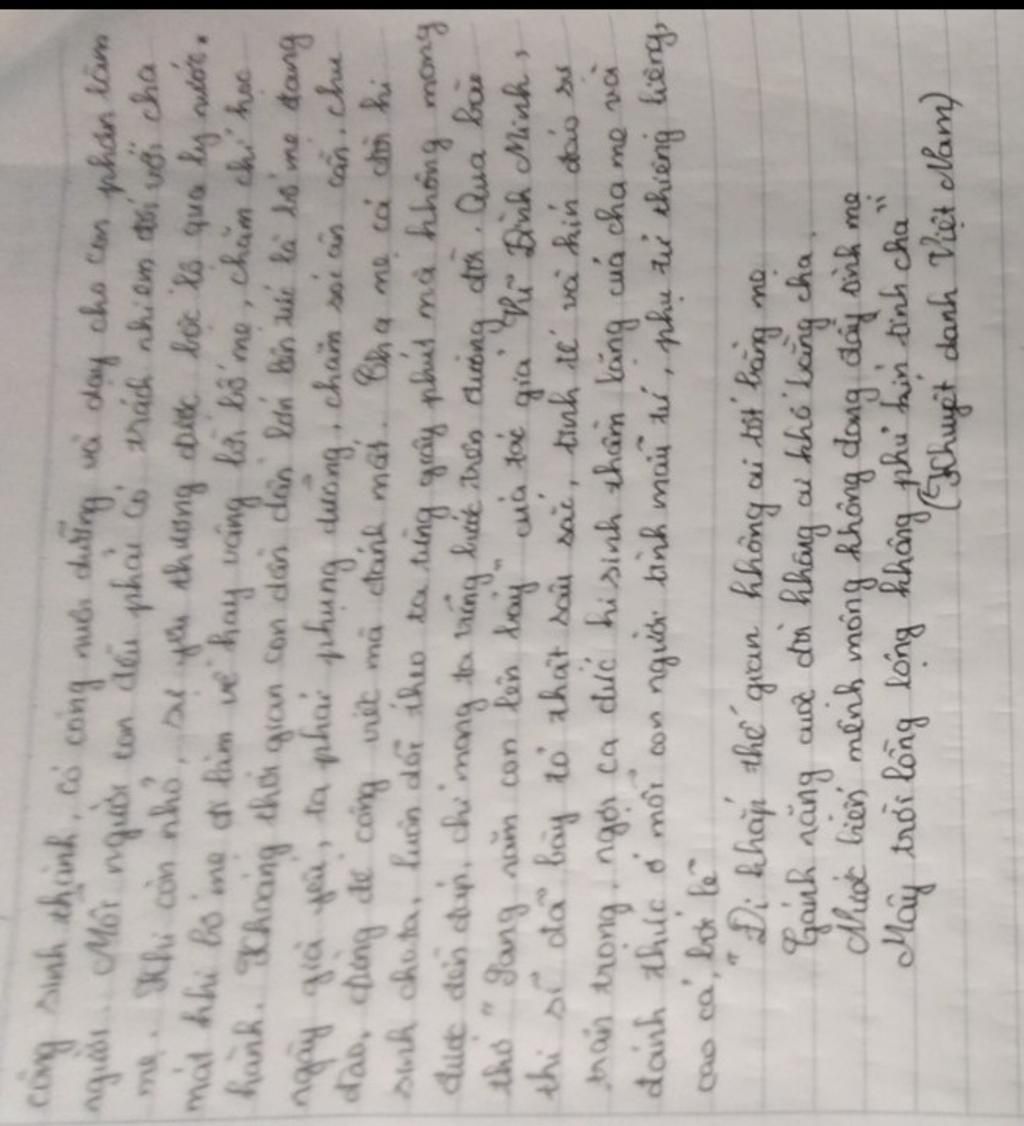 công sinh thành, có công nuôi dưỡng và dạy cho con phận làm
người. Mỗi người con đều phải có trách nhiệm đối với cha
mẹ. Khi còn nhỏ, sự yêu thương được bộc lộ qua ly nước
mát khi bố mẹ đi làm về hay vâng lời bố mẹ, chăm chỉ học
hành. Khoảng thời gian con dần dần lớn lên tức là bố mẹ đang
ngày già yếu, ta phải phụng dưỡng, chăm sóc ân cần, chu
đáo, đừng để công việc mà đánh mất. Cha mẹ cả đời hi
sinh cho ta, luôn dõi theo ta từng giây phút mà không mong
được đền đáp, chỉ mong ta vững bước trên đường đời. Qua bài
thơ " Sang năm con lên bảy" của tác giả Vũ Đình Minh,
thi sĩ đã bày tỏ thật sâu sắc, tinh tế và kín đáo sự
trân trọng, ngợi ca đức hi sinh thầm lặng của cha mẹ và
đánh thức ở mỗi con người tình mẫu tử, phụ tử thiêng liêng,
cao cả, bởi lẽ
" Đi khắp thế gian không ai tốt bằng mẹ
Gánh nặng cuộc đời không ai khổ bằng cha
Nước biển mênh mông không đong đầy tình mẹ
Mây trời lồng lộng không phủ kín tình cha"
(Khuyết danh Việt Nam)